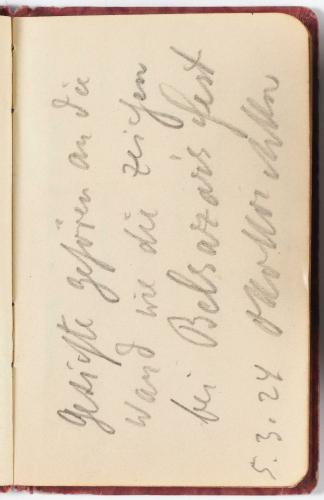 gesichte gehören an die
wand wie die zeichen
bei Belsazars fest
5.3.24